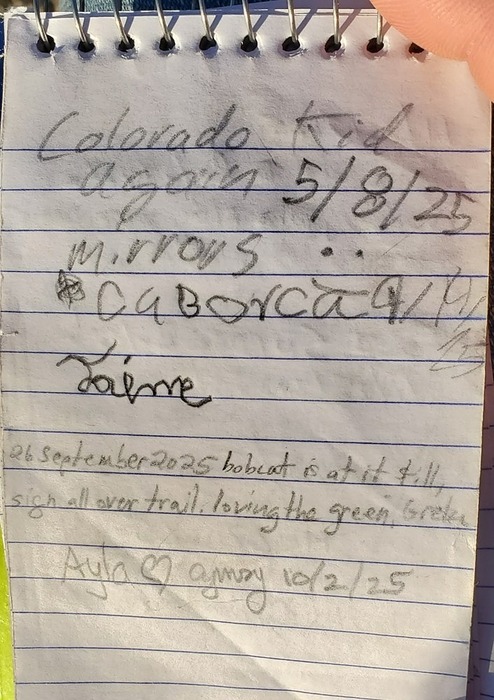 Colorado Kid
again 5/8/25
mirrors ..
CABORCA 9/14/
25
Jaime
26 September 2025 bobcat is at it still,
sign all over trail. loving the green,
Ayla ♡ 10/2/25